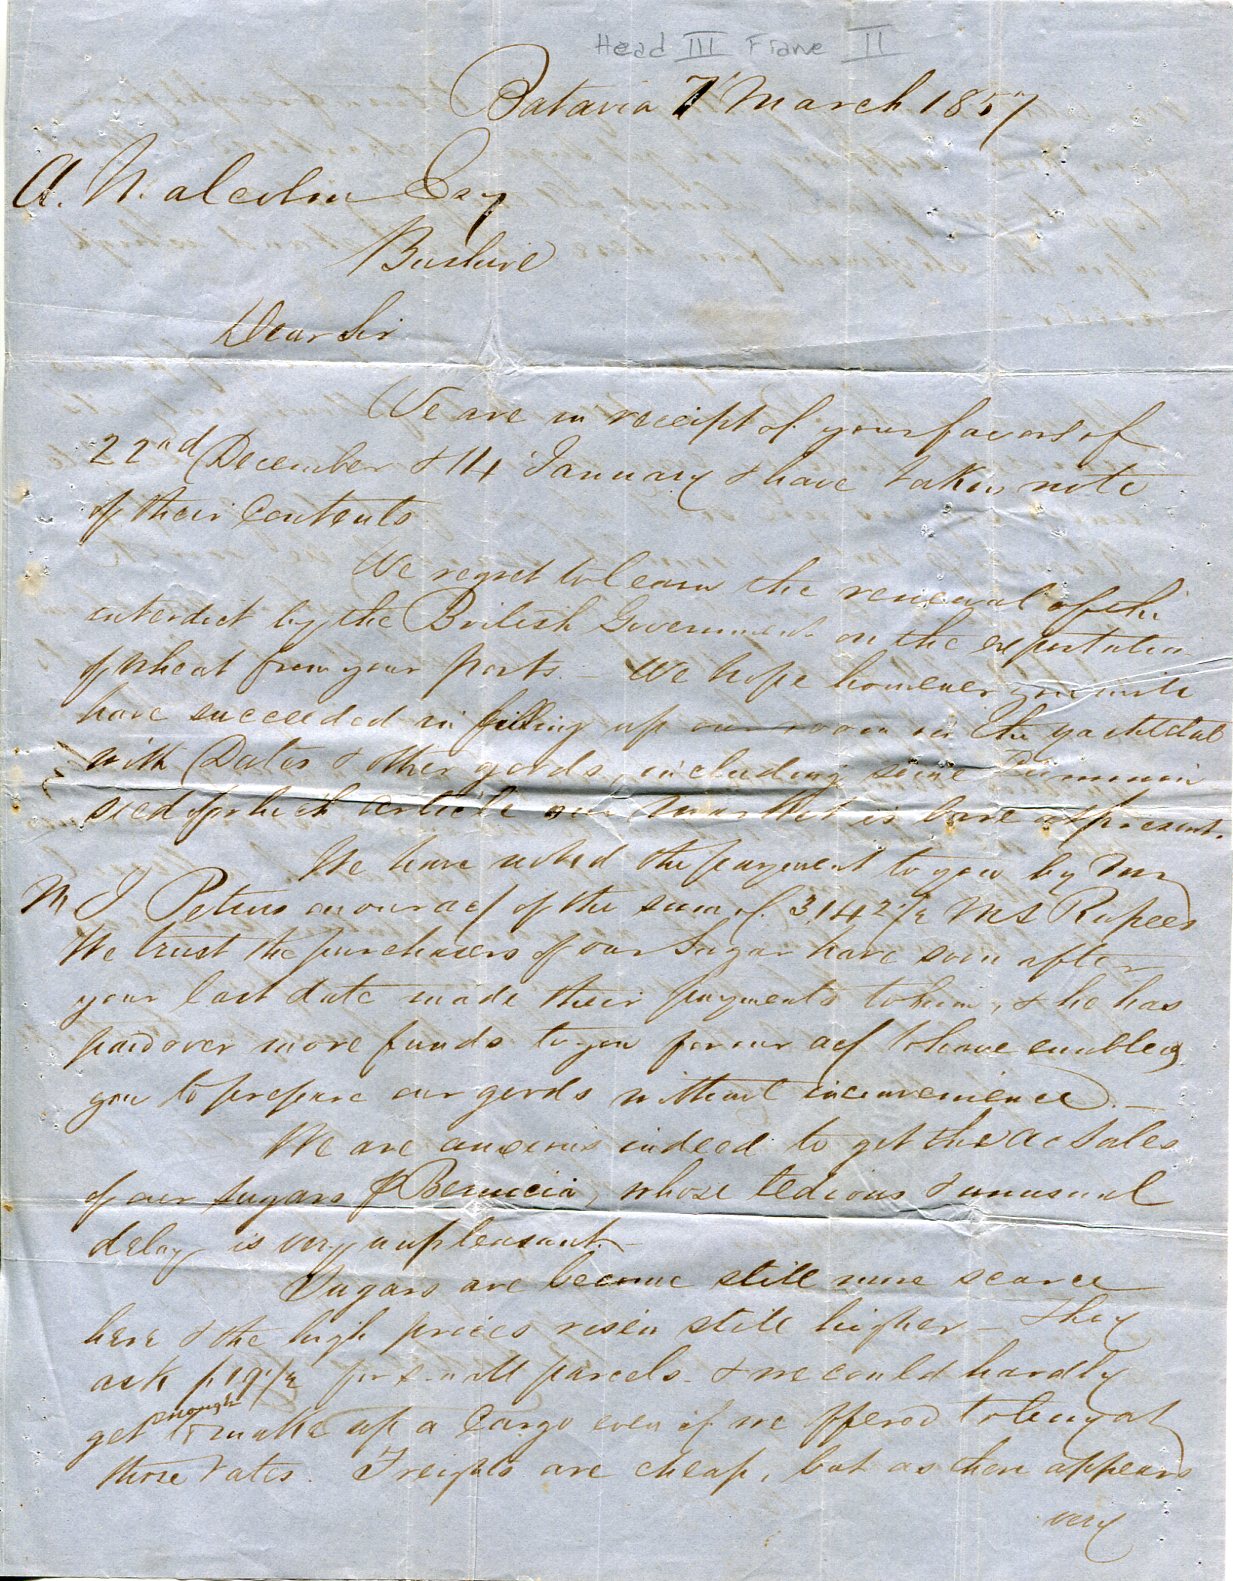 Head III Frame II
Batavia 7 March 1857
A. Malcolm Esq
Bushire
Dear Sir
We are in receipt of your favors of
22nd December & 14 January & have taken note
of their contents
We regret to learn the renewal of the
interdict by the British Government on the exportation
of wheat from your ports. – We hope however you will
have succeeded in filling up our room in the
with Dates & other goods, including some Cummin
seed of which article our market is bare at present.
We have noted the payment to you by Mr
M J Peters on our a/c of the sum of 3142 1/2 MS Rupees
We trust the purchasers of our Sugar have soon after
your last date made their payments to him, & he has
paid over more funds to you for our a/c to have enabled
you to prepare our goods without inconvenience. –
We are anxious indeed to get the Ac Sales
of our sugars P Bernicia, whose tedious & unusual
delay is very unpleasant. –
Sugars are become still more scarce
here & the high prices risen still higher – they
ask f 19 1/2 for small parcels. & we could hardly
get enough to make up a Cargo even if we offered to buy at
those rates. Freights are cheap, but as there appears
very